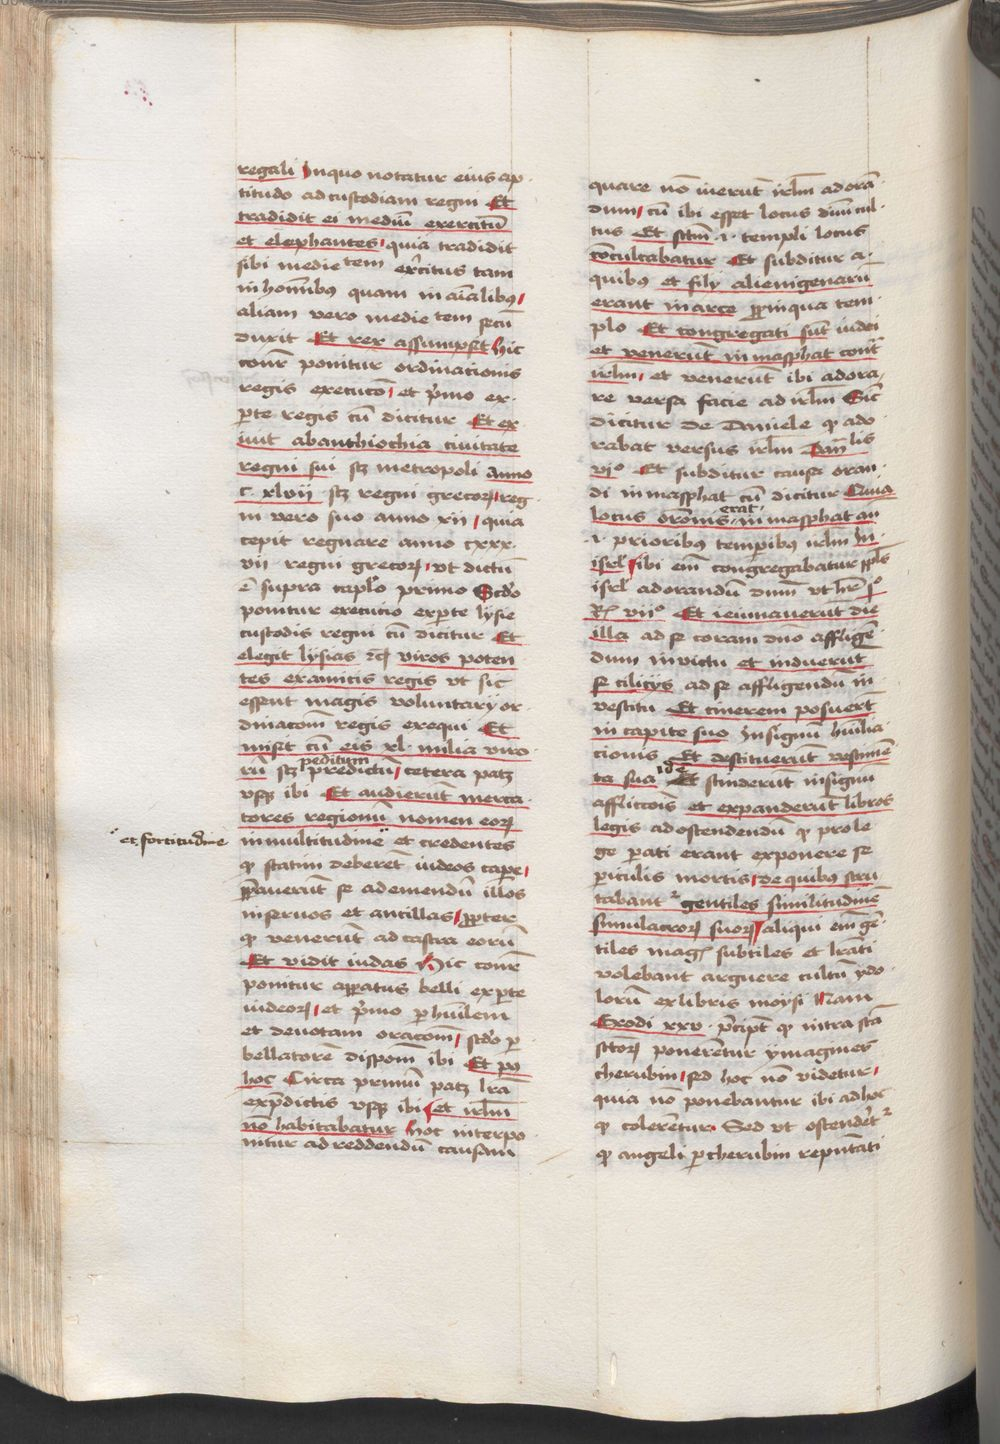 regali Inquo notatur eius ap
titudo ad custodiam regni Et
tradidit ei mediũ exercitum
et elephantes quia tradidit
sibi medietem exercitus tam
in hominibus quam in aialibus
aliam vero medietem secũ
duxit Et rex assumpsit hic
conr ponitur ordinationis
regis execucio et primo ex
parte regis cũ dicitur Et ex
iuit ab anthiochia ciuitate
regni sui scz metropoli anno
c xlvii scz regni grecorum reg
ni vero suo anno xii quia
cepit regnare anno cxxx
vii regni grecorum vt dictũ
ẽ supra capłо primo Scdo
ponitur execucio ex parte lysie
custodis regni cũ dicitur Et
elegit lysias viros poten
tes ex amicis regis vt sic
essent magis voluntarij or
dinacom regis exequi Et
misit cũ eis xl milia viro
rũ scz peditum predictũ cetera patz
vsqz ibi Et audierũt merca
tores regionũ nomen eorum
et fortitudine
in multitudinẽ et credentes
quod statim deberẽt iudeos capere
pparauerũt se ad emendũ illos
in seruos et ancillas propter
quod venerũt ad castra eorũ
Et vidit iudas Hic conr
ponitur apparatus belli ex parte
iudeorum et primo per humilem
et deuotam oracom scdo per
bellatorẽ disposicom ibi Et po
hoc Circa primũ patz lrã
ex predictis vsqz ibi et irlm
nõ habitabatur hoc interpo
nitur ad reddendũ causam
quare nõ iuerũt irlm ad oran
dum cũ ibi esset locus diuini cul
tus Et sctm .i. templi locus
conculcabatur Et subditur a
quibus et filij alienigenarũ
erant in arce propinqua tem
plo Et congregati sũt iudei
et venerũt in masphat contra
irlm et venerũt ibi adora
re versa facie ad irlm Sic
dicitur de Daniele quod ado
rabat versus irlm Danielis
vio Et subditur causa oran
di in masphat cũ dicitur Quia
locus oronis erat in masphat an
.i. prioribus temporibus irlm In
isrl ibi eni congregabatur ppls
isrl ad orandũ dnm vt hr
R viio Et ieiunauerũt die
illa ad se coram dno affligen
dum in victu et induerũt
se cilicijs ad se affligendũ in
vestitu Et cinerem posuerũt
in capite suo In signũ humilia
cionis Et destituerũt vestimẽ
ta sua Et scinderũt in signũ
afflictiois et expanderũt libros
legis ad ostendendũ quod pro le
ge parati erant exponere se
periculis mortis de quibus scru
tabantur gentiles similitudinẽ
simulacrorum suorum aliqui eni gẽ
tiles magis subtiles et lrati
volebant arguere cultũ ydo
lorũ ex libris moysi Nam
Exodi xxv precipit quod intra scta
sctorum ponerẽtur ymagines
cherubin sed hoc nõ videtur
quia no ponebantur ibi ad hoc
quod colerẽtur Sed vt ostenderetur
quod angeli per cherubin reputati